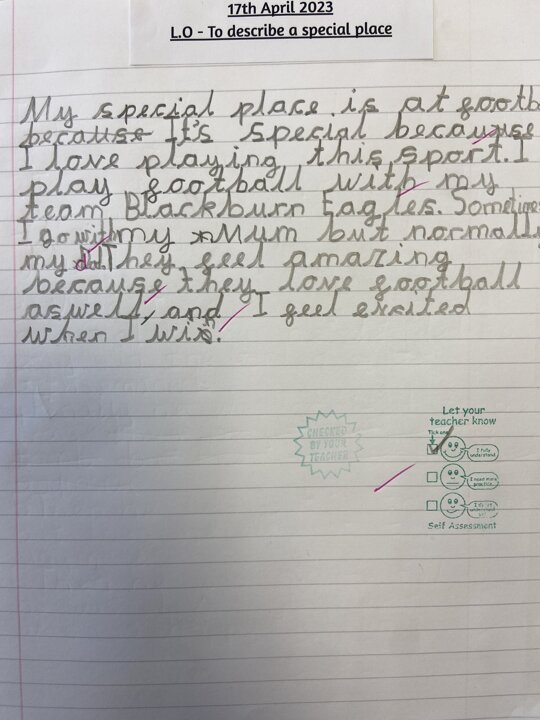 17th April 2023
L.O - To describe a special place
My special place is at footb
because It's special because
I love playing this sport. I
play football with my
team Blackburn Eagles. Sometimes
I go with my Mum but normally
my dad. They feel amazing
because they love football
aswell, and I feel excited
when I win.
Let your
teacher know
Tick one
CHECKED
BY YOUR
TEACHER
I fully
understand
I need more
practice
Self Assessment